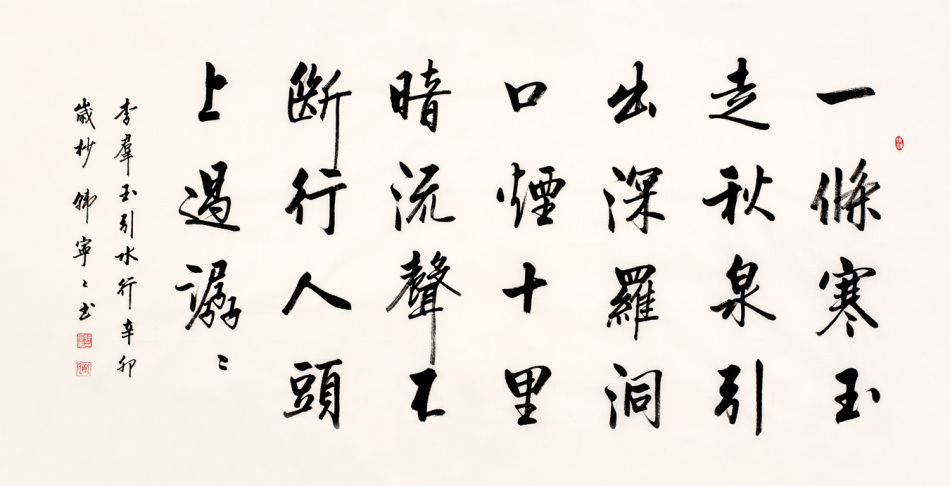 一條寒玉
走秋泉引
出深羅洞
口煙十里
暗流聲不
斷行人頭
上過潺〻
李羣玉引水行辛卯
歲杪韓寧〻書